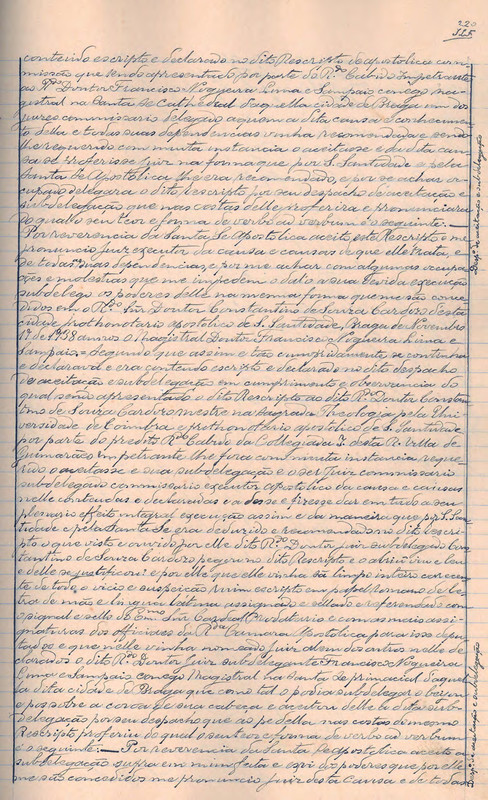 220
115
contendo escripto e declarado no dito Rescripto da apostolica com
missão que sendo apresentado por parte do R.do Cabido Impetrante
ao R.do Doutor Francisco Nogueira Lima e Sampaio conego ma
gistral na Santa Sé Cathedral daquella cidade de Braga em dos
juizes commissario delegado a quem a dita causa e conhecimen
to della e todas suas dependencias vinha recomendada e sendo
lhe requerido com muita instancia o aceitasse e da dita cau
sa se proferisse Juiz na forma que por S. Santidade e pela
Santa Sé Apostolica lhe era recomendado, e por se achar oc
cupado delegara o dito Rescripto por seu despacho de aceitação e
subdelegação que nas costas delle proferira e pronunciara
do qual o seu teor e forma de verbo ad verbum é o seguinte: —
Por reverencia da Santa Sé Apostolica aceito este Rescripto e me
pronuncio juiz executor da causa e causas de que elle trata, e
de todas suas dependencias, e por me achar com algumas occupa
ções e molestias que me impedem o dalo a sua devida execução
subdelego os poderes delle na mesma forma que me são conce
didos em o R.do Snr Doutor Constantino de Souza Cardozo desta
cidade prothonotario apostolico de S. Santidade, Braga de Novembro
17 de 1758 annos. O Magistral Doutor Francisco Nogueira Lima e
Sampaio — Segundo que assim e tão cumpridamente se continha
e declarava e era contendo escripto e declarado no dito despacho
de aceitação e subdelegação em cumprimento e observancia do
qual sendo apresentado o dito Rescripto ao dito R.do Doutor Constan
tino de Souza Cardozo mestre na Sagrada Theologia pela Uni
versidade de Coimbra e prothonotario apostolico de S. Santidade
por parte do predito R.do Cabido da Collegiada I. desta R. Villa de
Guimarães Impetrante lhe fora com muita instancia reque
rido o aceitasse e sua subdelegação e o ser Juiz commissario
subdelegado commissario executor apostolico da causa e causas
nelle contendas e declaradas e a desse e fizesse dar em tudo a seu
plenario effeito integral execução assim e da maneira que por S. San
tidade e pela Santa Sé era deduzido e recomendado no dito Rescri
pto o que visto e ouvido por elle dito R.do Doutor Juiz subdelegado Con
stantino de Souza Cardozo pegou no dito Rescripto e o abriu viu e leu
e delle se justificou: e por elle que elle vinha são limpo inteiro carecen
te de todo o vicio e suspeição e vim escripto em papel romano de le
tra de mão e lingua latina assignado e sellado e referendado com
o signal e sello do Em.mo Snr Cardeal Prodatario e com as mais assi
gnaturas dos officiaes da R.da Camara Apostolica para isso depu
tados e que nelle vinha nomeado Juiz alem dos outros nelle de
clarados o dito R.do Doutor Juiz subdelegante Francisco Nogueira
Lima e Sampaio conego Magistral na Santa Sé primacial daquel
la dita cidade de Braga que como tal o podia subdelegar o beijou
e pos sobre a coroa de sua cabeça e aceitou delle a dita subde
delegação por seu despacho que ao pé della nas costas do mesmo
Rescripto proferiu do qual o seu teor e forma de verbo ad verbum
é o seguinte: — Por reverencia da Santa Sé apostolica aceito a
subdelegação supra em mim feita e os poderes que por elle
me são concedidos me pronuncio Juiz desta causa e de todas
Desp.o de aceitação e subdelegação
Desp.o de aceitação e subdelegação